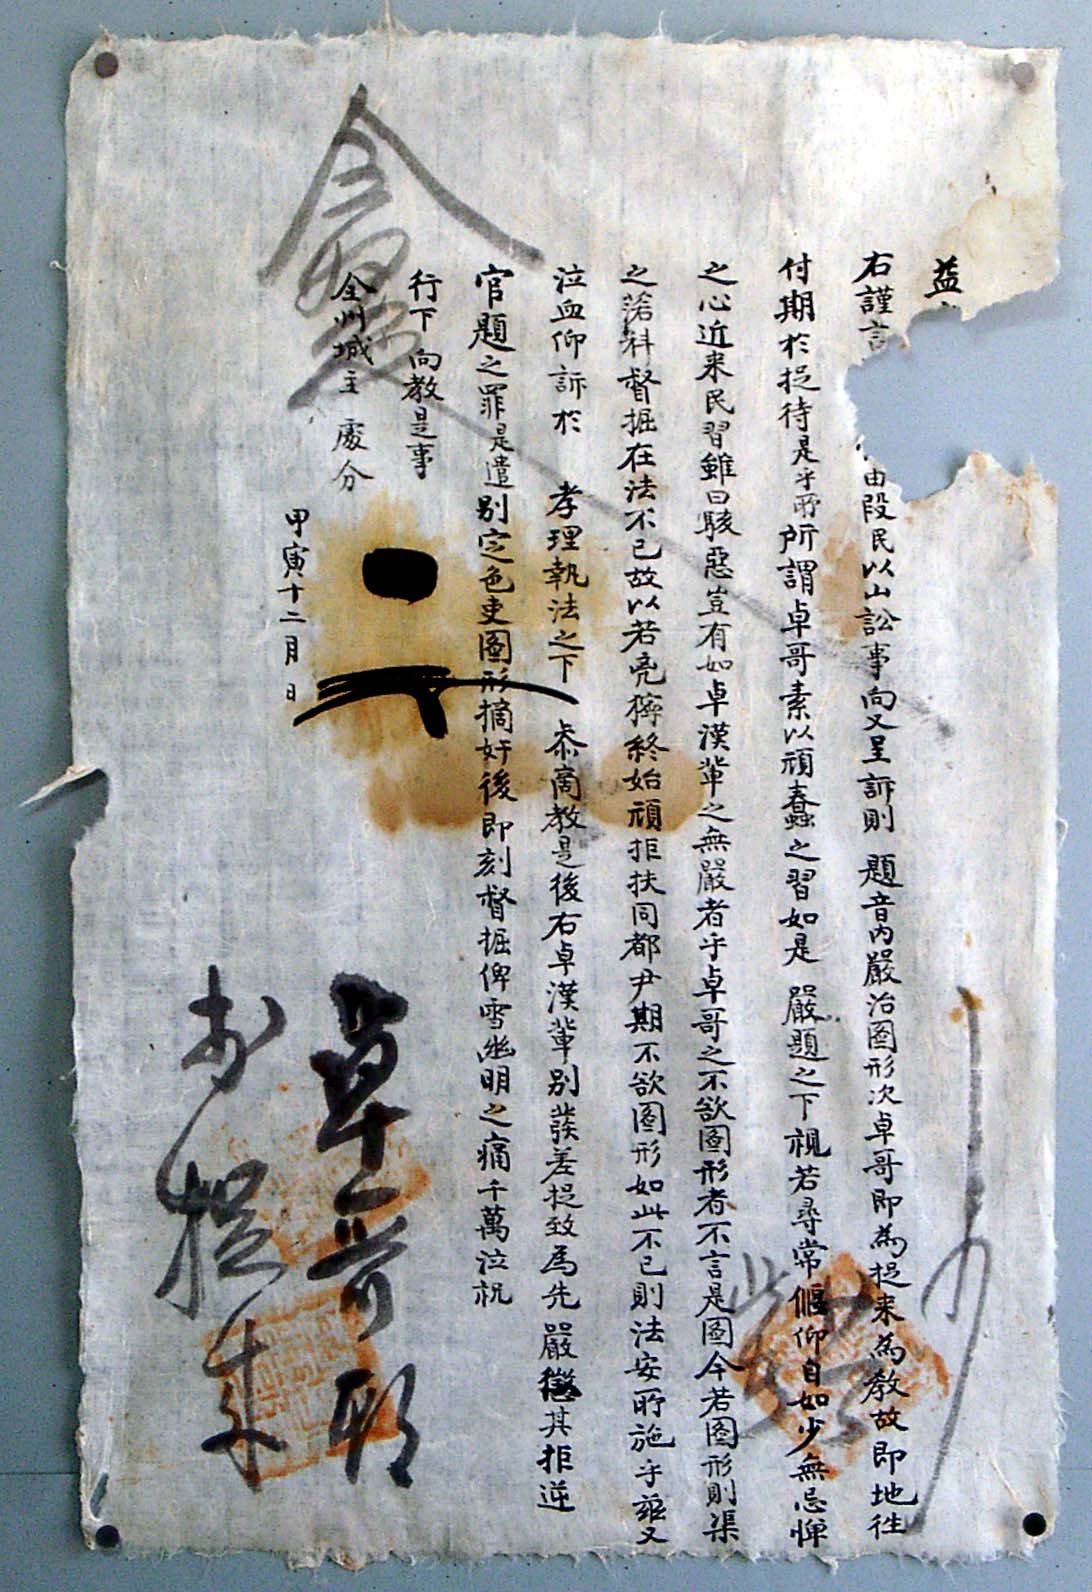 益
右謹言 由段民以山訟事向又呈訴則 題音內嚴治圖形次卓哥即為捉来為敎故即地往
付期於捉待是乎所 所謂卓哥素以頑蠢之習如是 嚴題之下視若尋常偃仰自如少無忌憚
之心近来民習雖曰駭惡豈有如卓漢輩之無嚴者乎卓哥之不欲圖形者不言是圖今若圖形則渠
之 科督掘在法不已故以若 獰終始頑拒扶同都尹期不欲圖形如此不已則法安所施乎玆又
泣血仰訴於 孝理執法之下 叅商教是後右卓漢輩別發差捉致為先 嚴懲其拒逆
官題之罪是遣別定色吏圖形摘奸後即刻督掘俾雪幽明之痛千萬泣祝
行下向教是事
全州城主 處分
甲寅十二月 日
卓哥
捉来